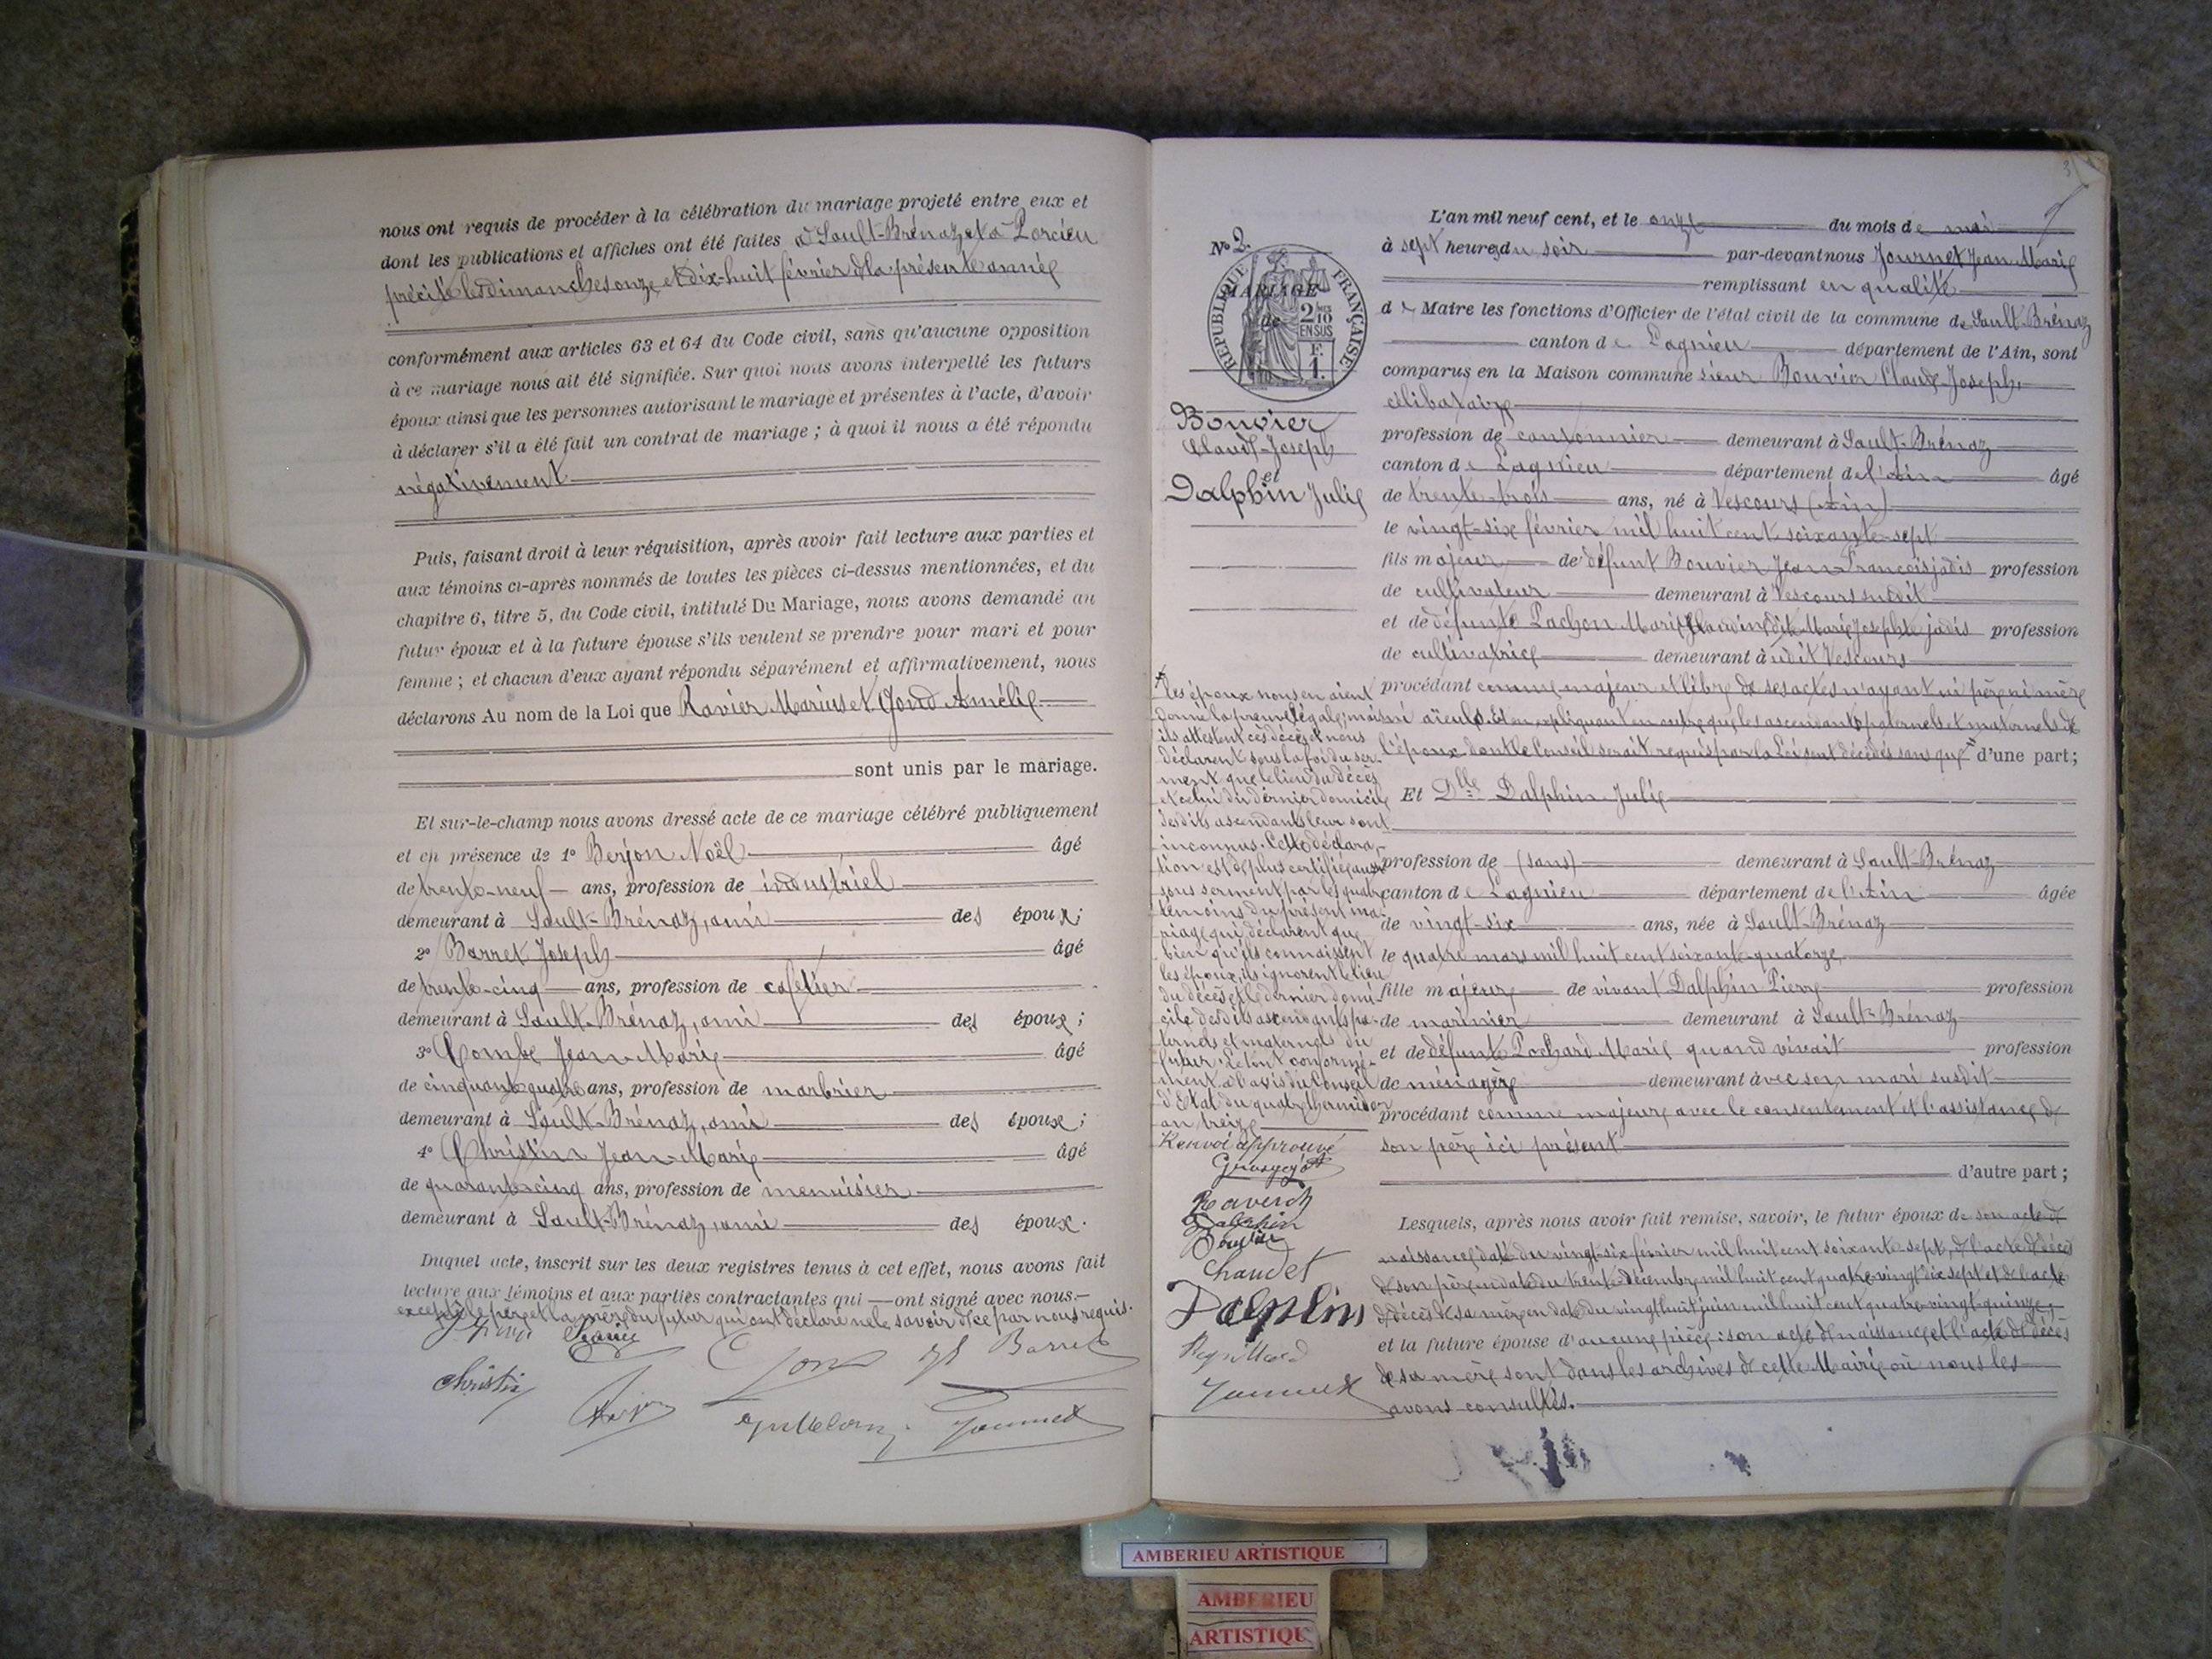 nous ont requis de procéder à la célébration du mariage projeté entre eux et
dont les publications et affiches ont été faites à Sault-Brénaz et à Porcieu
précité les dimanches onze et dix-huit février de la présente année
conformément aux articles 63 et 64 du Code civil, sans qu'aucune opposition
à ce mariage nous ait été signifiée. Sur quoi nous avons interpellé les futurs
époux ainsi que les personnes autorisant le mariage et présentes à l'acte, d'avoir
à déclarer s'il a été fait un contrat de mariage ; à quoi il nous a été répondu
négativement
Puis, faisant droit à leur réquisition, après avoir fait lecture aux parties et
aux témoins ci-après nommés de toutes les pièces ci-dessus mentionnées, et du
chapitre 6, titre 5, du Code civil, intitulé Du Mariage, nous avons demandé au
futur époux et à la future épouse s'ils veulent se prendre pour mari et pour
femme ; et chacun d'eux ayant répondu séparément et affirmativement, nous
déclarons Au nom de la Loi que Ravier Marius et Goud Amélie
sont unis par le mariage.
Et sur-le-champ nous avons dressé acte de ce mariage célébré publiquement
et en présence de 1° Berjon Noël âgé
de trente-neuf ans, profession de industriel
demeurant à Sault-Brénaz, ami des époux ;
2° Barret Joseph âgé
de trente-cinq ans, profession de cafetier
demeurant à Sault-Brénaz, ami des époux ;
3° Combe Jean-Marie âgé
de cinquante-quatre ans, profession de marbrier
demeurant à Sault-Brénaz, ami des époux ;
4° Christin Jean-Marie âgé
de quarante-cinq ans, profession de menuisier
demeurant à Sault-Brénaz, ami des époux.
Duquel acte, inscrit sur les deux registres tenus à cet effet, nous avons fait
lecture aux témoins et aux parties contractantes qui ont signé avec nous.
excepté le père et la mère du futur qui ont déclaré ne le savoir de ce par nous requis.
Barret
Christin
Journet
N° 2.
MARIAGE
de
RÉPUBLIQUE FRANÇAISE
2/10 EN SUS
F. 1.
Bouvier
Claude-Joseph
et
Dalphin Julie
L'an mil neuf cent, et le onze du mois de mai
à sept heures du soir par-devant nous Journet Jean-Marie
remplissant en qualité
de Maire les fonctions d'Officier de l'état civil de la commune de Sault-Brénaz
canton de Lagnieu département de l'Ain, sont
comparus en la Maison commune sieur Bouvier Claude-Joseph,
célibataire
profession de cantonnier demeurant à Sault-Brénaz
canton de Lagnieu département de l'Ain âgé
de trente-trois ans, né à Vescours (Ain)
le vingt-six février mil huit cent soixante-sept
fils majeur de défunt Bouvier Jean-François jadis profession
de cultivateur demeurant à Vescours susdit
et de défunte Pachon Marie Claudine dite Marie Josephte jadis profession
de cultivatrice demeurant à udit Vescours
procédant comme majeur et libre de ses actes n'ayant ni père ni mère
ni aïeuls. Et en expliquant en outre que les ascendants paternels et maternels de
l'époux dont le Conseil serait requis par la Loi sont décédés sans que d'une part ;
les époux nous en aient
donné la preuve légale; mais
ils attestent ces décès et nous
déclarent sous la foi du ser-
ment que le lieu du décès
et celui du dernier domicile
desdits ascendants leur sont
inconnus. Cette déclara-
tion est de plus certifiée aussi
sous serment par les quatre
témoins du présent ma-
riage qui déclarent que
bien qu'ils connaissent
les époux, ils ignorent le lieu
du décès et le dernier domi-
cile desdits ascendants pa-
ternels et maternels du
futur. Le tout conformé-
ment à l'avis du Conseil
d'Etat du quatre thermidor
an treize
Renvoi approuvé
Dalphin
Chaudet
Dalphin
Journet
Et Dlle Dalphin Julie
profession de (sans) demeurant à Sault-Brénaz
canton de Lagnieu département de l'Ain âgée
de vingt-six ans, née à Sault-Brénaz
le quatre mars mil huit cent soixante-quatorze
fille majeure de vivant Dalphin Pierre profession
de marinier demeurant à Sault-Brénaz
et de défunte Pochard Marie quand vivait profession
de ménagère demeurant avec son mari susdit
procédant comme majeure avec le consentement et l'assistance de
son père ici présent
d'autre part ;
Lesquels, après nous avoir fait remise, savoir, le futur époux de son acte de
naissance daté du vingt-six février mil huit cent soixante-sept, de l'acte de décès
de son père en date du trente décembre mil huit cent quatre-vingt dix-sept et de l'acte
de décès de sa mère en date du vingt huit juin mil huit cent quatre-vingt-quinze,
et la future épouse d'aucune pièce : son acte de naissance et l'acte de décès
de sa mère sont dans les archives de cette Mairie où nous les
avons consultés.
AMBERIEU ARTISTIQUE
AMBERIEU
ARTISTIQUE